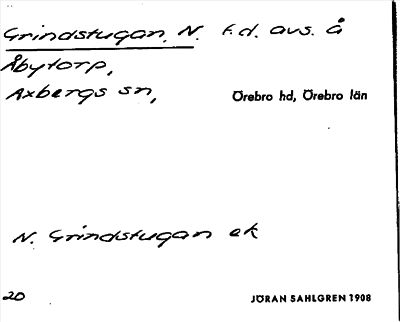 Grindstugan, N. f.d. avs. å
Åbytorp,
Axbergs sn, Örebro hd, Örebro län
N. Grindstugan ek
20 JÖRAN SAHLGREN 1908